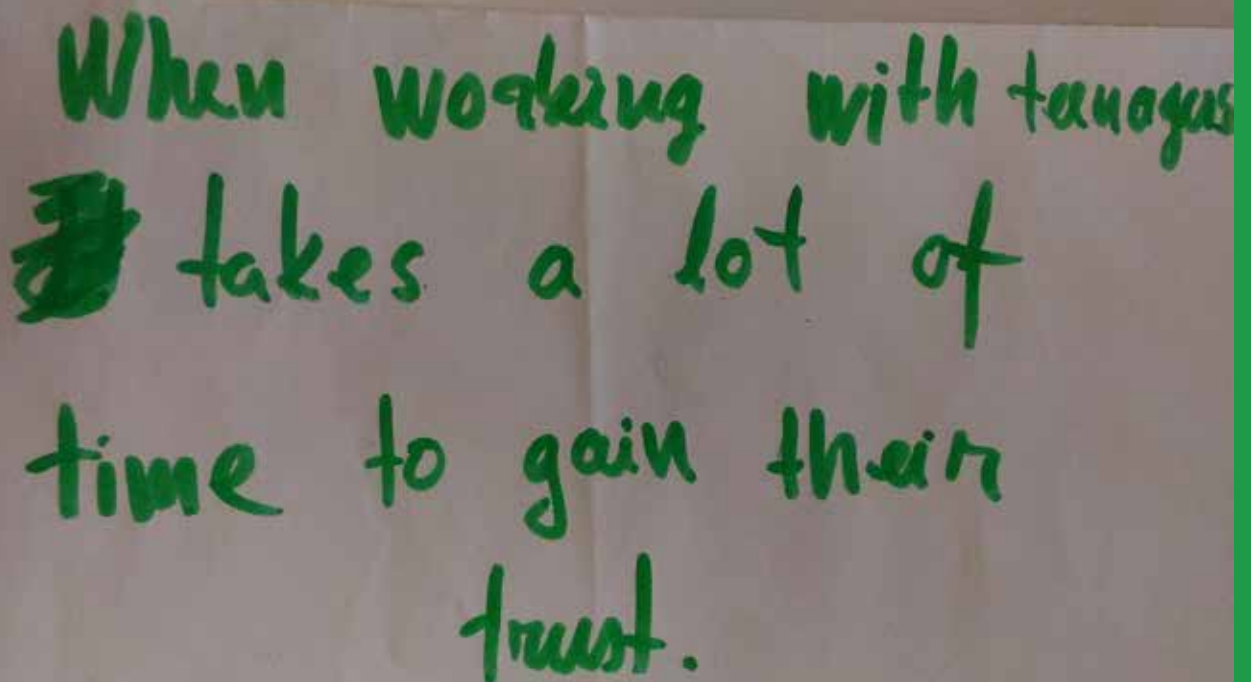 When working with teenagers
takes a lot of
time to gain their
trust.